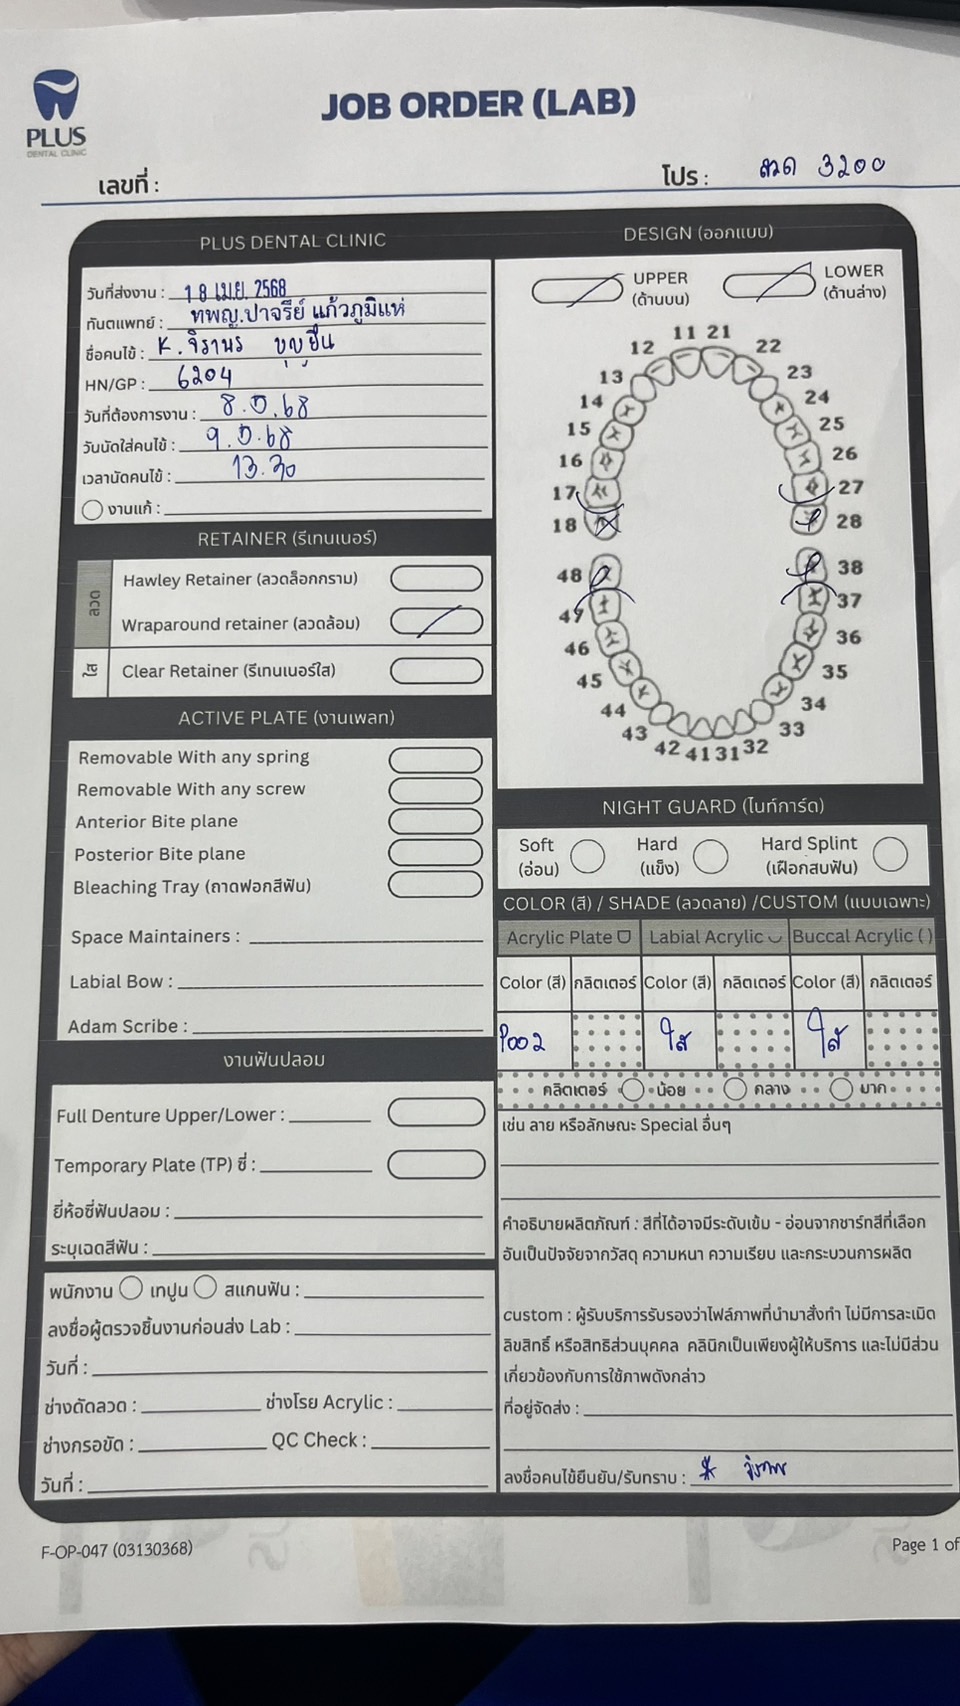 PLUS
DENTAL CLINIC
JOB ORDER (LAB)
เลขที่ :
โปร : ลวด 3200
PLUS DENTAL CLINIC
วันที่ส่งงาน : 18 เม.ย. 2568
ทันตแพทย์ : ทพญ.ปาจรีย์ แก้วภูมิแห่
ชื่อคนไข้ : K.
HN/GP : 6204
วันที่ต้องการงาน : 8.5.68
วันนัดใส่คนไข้ : 9.5.68
เวลานัดคนไข้ : 13.30
งานแก้ :
RETAINER (รีเทนเนอร์)
ลวด
Hawley Retainer (ลวดล็อกกราม)
Wraparound retainer (ลวดล้อม)
ใส
Clear Retainer (รีเทนเนอร์ใส)
ACTIVE PLATE (งานเพลท)
Removable With any spring
Removable With any screw
Anterior Bite plane
Posterior Bite plane
Bleaching Tray (ถาดฟอกสีฟัน)
Space Maintainers :
Labial Bow :
Adam Scribe :
งานฟันปลอม
Full Denture Upper/Lower :
Temporary Plate (TP) ซี่ :
ยี่ห้อซี่ฟันปลอม :
ระบุเฉดสีฟัน :
พนักงาน เทปูน สแกนฟัน :
ลงชื่อผู้ตรวจชิ้นงานก่อนส่ง Lab :
วันที่ :
ช่างดัดลวด : ช่างโรย Acrylic :
ช่างกรอขัด : QC Check :
วันที่ :
DESIGN (ออกแบบ)
UPPER
(ด้านบน)
LOWER
(ด้านล่าง)
11 21
12 22
13 23
14 24
15 25
16 26
17 27
18 28
48 38
47 37
46 36
45 35
44 34
43 33
42 41 31 32
NIGHT GUARD (ไนท์การ์ด)
Soft
(อ่อน)
Hard
(แข็ง)
Hard Splint
(เฝือกสบฟัน)
COLOR (สี) / SHADE (ลวดลาย) /CUSTOM (แบบเฉพาะ)
Acrylic Plate Labial Acrylic Buccal Acrylic ( )
Color (สี) กลิตเตอร์ Color (สี) กลิตเตอร์ Color (สี) กลิตเตอร์
P002 ใส ใส
กลิตเตอร์ น้อย กลาง มาก
เช่น ลาย หรือลักษณะ Special อื่นๆ
คำอธิบายผลิตภัณฑ์ : สีที่ได้อาจมีระดับเข้ม - อ่อนจากชาร์ทสีที่เลือก
อันเป็นปัจจัยจากวัสดุ ความหนา ความเรียบ และกระบวนการผลิต
custom : ผู้รับบริการรับรองว่าไฟล์ภาพที่นำมาสั่งทำ ไม่มีการละเมิด
ลิขสิทธิ์ หรือสิทธิส่วนบุคคล คลินิกเป็นเพียงผู้ให้บริการ และไม่มีส่วน
เกี่ยวข้องกับการใช้ภาพดังกล่าว
ที่อยู่จัดส่ง :
ลงชื่อคนไข้ยืนยัน/รับทราบ :
F-OP-047 (03130368)
Page 1 of